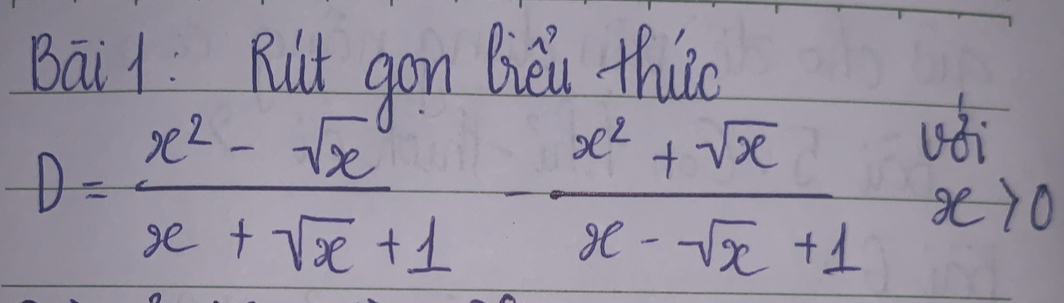 Bài 1: Rút gọn biểu thức
D = \frac{x^2 - \sqrt{x}}{x + \sqrt{x} + 1} - \frac{x^2 + \sqrt{x}}{x - \sqrt{x} + 1} với x > 0